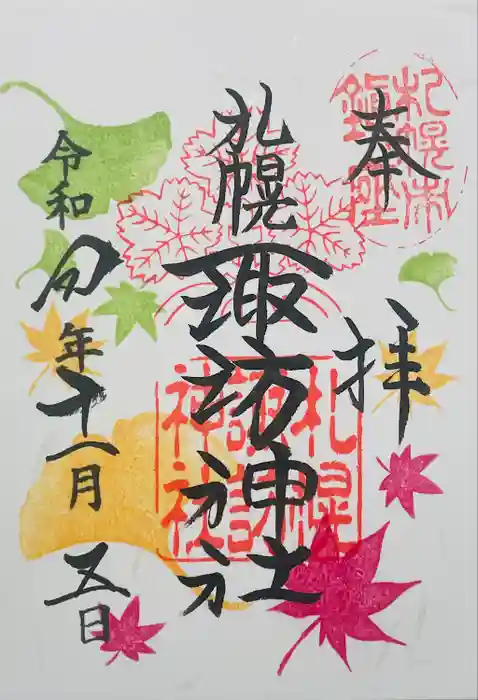 奉拝
札幌市
札幌諏訪神社
札幌
諏訪
神社
令和年十一月五日